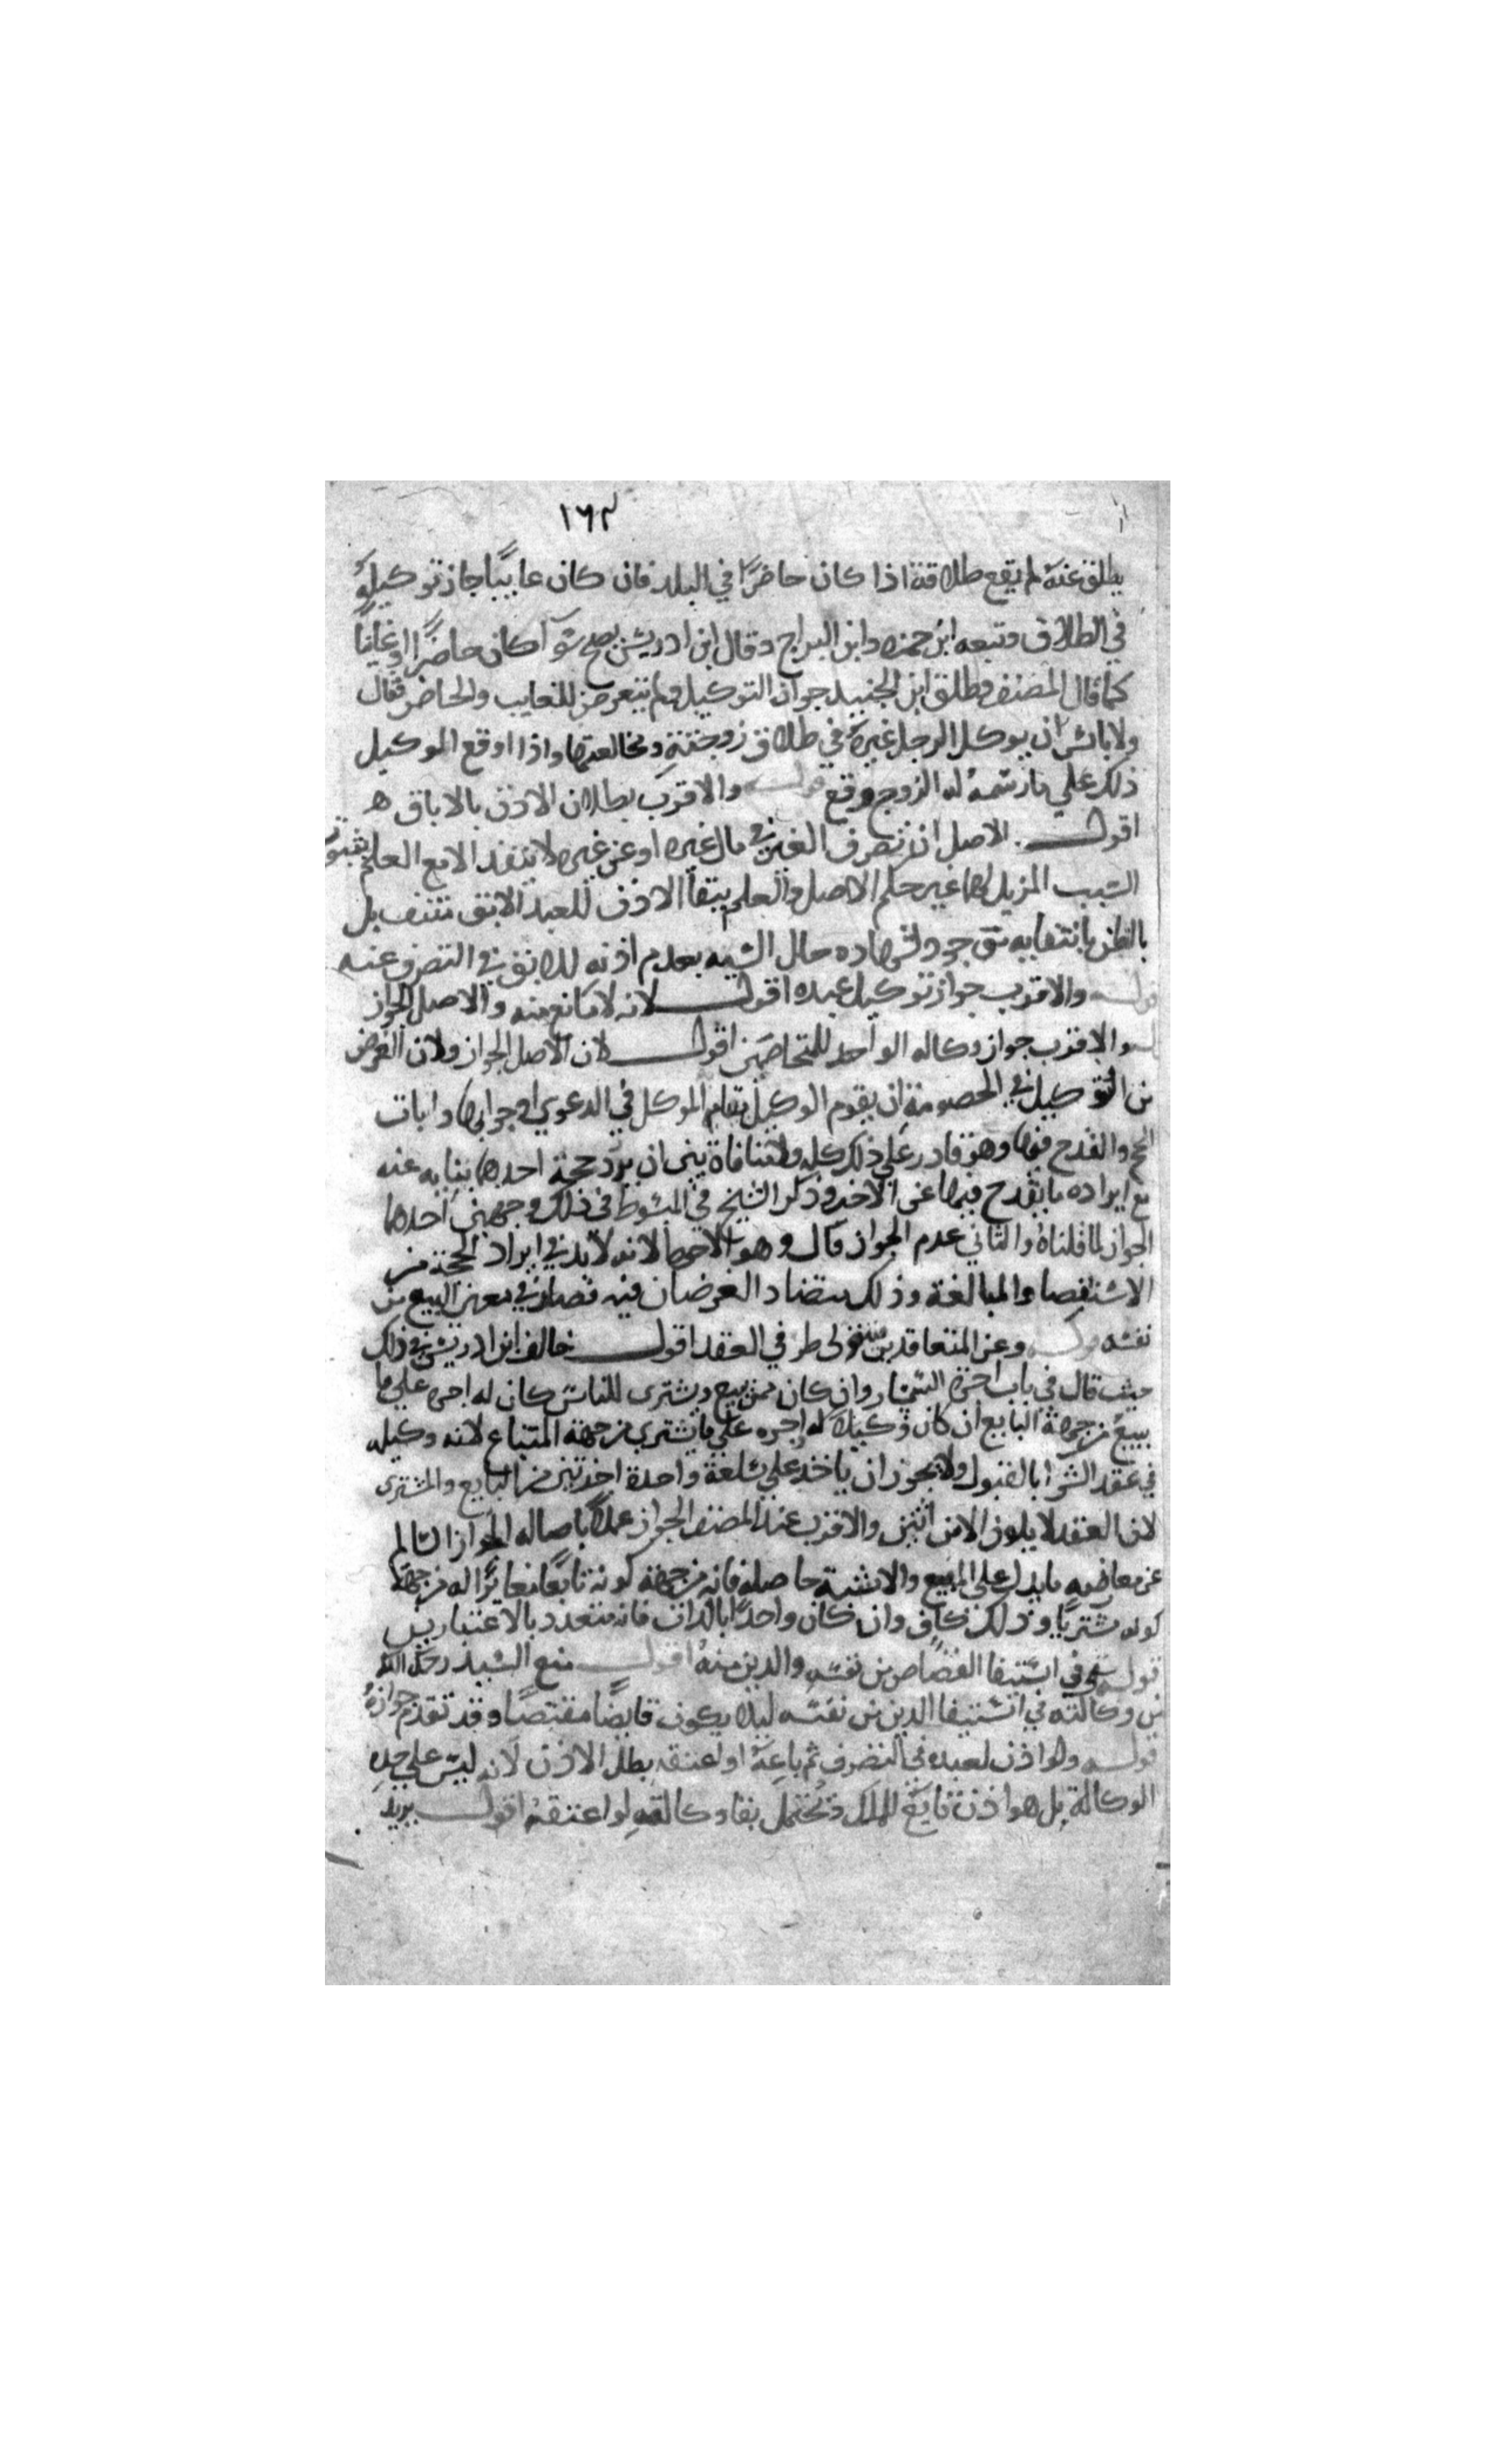 ١٦٣
يطلق عنه لم يقع طلاقة اذا كان حاضرًا في البلد فان كان غايبًا جاز توكيله
في الطلاق وتبعه ابن حمزه وابن البراج وقال ابن ادريس يصح سوآ كان حاضرًا او غايبًا
كما قال المصنف واطلق ابن الجنيد جواز التوكيل ولم يتعرض للغايب والحاضر فقال
ولا باس ان يوكل الرجل غيره في طلاق زوجته ومخالعتها واذا اوقع الموكيل
ذلك علي ما رسمه له الزوج وقع قوله والاقرب بطلان الاذن بالاباق ه
اقول الاصل ان تصرف الغير في مال غيره او عن غيره لا ينفذ الا مع العلم بثبوت
السبب المزيل لها عن حكم الاصل والعلم ببقآ الاذن للعبد الآبق منتف بل
بالظن بانتفايه موجود لشهاده حال السيد بعدم اذنه للابق في التصرف عنه
قوله والاقرب جواز توكيل عبده اقول لانه لا مانع منه والاصل الجواز
والاقرب جواز وكاله الواحد للمتخاصمين اقول لان الاصل الجواز ولان الغرض
من التوكيل في الخصومة ان يقوم الوكيل مقام الموكل في الدعوي او جوابها واثبات
الحجج والقدح فيها وهو قادر علي ذلك كله ولا منافاة بين ان يرد حجة احدهما بنيابه عنه
مع ايراده ما يقدح فيها عن الآخر وذكر الشيخ في المبسوط في ذلك وجهين احدهما
الجواز لما قلناه والثاني عدم الجواز قال وهو الاحوط لانه لا بد في ايراد الحجة من
الاستقصا والمبالغة وذلك يتضاد الغرضان فيه فصار في معنى البيع من
نفسه قوله وعن المتعاقدين فيتولى طرفي العقد اقول خالف ابن ادريس في ذلك
حيث قال في باب اجرة السمسار وان كان ممن يبيع ويشترى للناس كان له اجره علي ما
يبيع من جهة البايع ان كان وكيلا له واجره علي ما يشتري من جهة المبتاع لانه وكيله
في عقد الشرا بالقبول ولا يجوز ان ياخذ علي سلعة واحدة اجرتين من البايع والمشترى
لان العقد لا يكون الا من اثنين والاقرب عند المصنف الجواز عملًا باصاله الجواز السالم
عن معارضه ما يدل على المنع والاثنينية حاصلة فانه من جهة كونه بايعًا مغايرًا له من جهة
كونه مشتريًا وذلك كافٍ وان كان واحدًا بالذات فانه متعدد بالاعتبارين
قوله وفي استيفا القصاص من نفسه والدين منه اقول منع الشيد رحمه الله
من وكالته في استيفا الدين من نفسه ليلا يكون قابضًا مقتبضًا وقد تقدم جوازه
قوله ولو اذن لعبده في التصرف ثم باعه او اعتقه بطل الاذن لانه ليس علي حد
الوكالة بل هو اذن تابع للملك ويحتمل بقا وكالته لو اعتقه اقول يريد